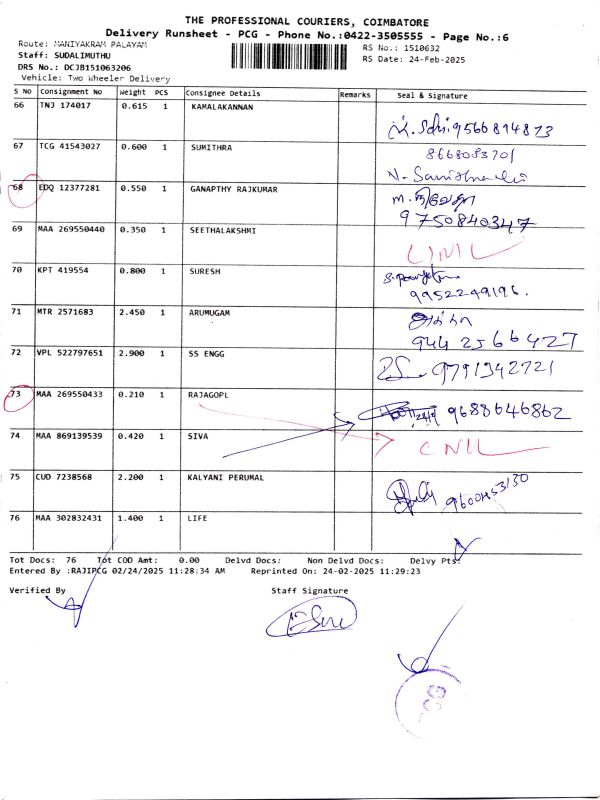 THE PROFESSIONAL COURIERS, COIMBATORE
Delivery Runsheet - PCG - Phone No.:0422-3505555 - Page No.:6
Route: MANIYAKRAM PALAYAM
RS No.: 1510632
Staff: SUDALIMUTHU
RS Date: 24-Feb-2025
DRS No.: DCJB151063206
Vehicle: Two Wheeler Delivery
S No Consignment No Weight PCS Consignee Details Remarks Seal & Signature
66 TNJ 174017 0.615 1 KAMALAKANNAN
9566814873
67 TCG 41543027 0.600 1 SUMITHRA
68 EDQ 12377281 0.550 1 GANAPTHY RAJKUMAR
9750840347
69 MAA 269550440 0.350 1 SEETHALAKSHMI
70 KPT 419554 0.800 1 SURESH
9952249196.
71 MTR 2571683 2.450 1 ARUMUGAM
9442566427
72 VPL 522797651 2.900 1 SS ENGG
9791342721
73 MAA 269550433 0.210 1 RAJAGOPL
9688646862
74 MAA 869139539 0.420 1 SIVA
75 CUD 7238568 2.200 1 KALYANI PERUMAL
76 MAA 302832431 1.400 1 LIFE
Tot Docs: 76 Tot COD Amt: 0.00 Delvd Docs: Non Delvd Docs: Delvy Pts:
Entered By :RAJIPCG 02/24/2025 11:28:34 AM Reprinted On: 24-02-2025 11:29:23
Verified By Staff Signature